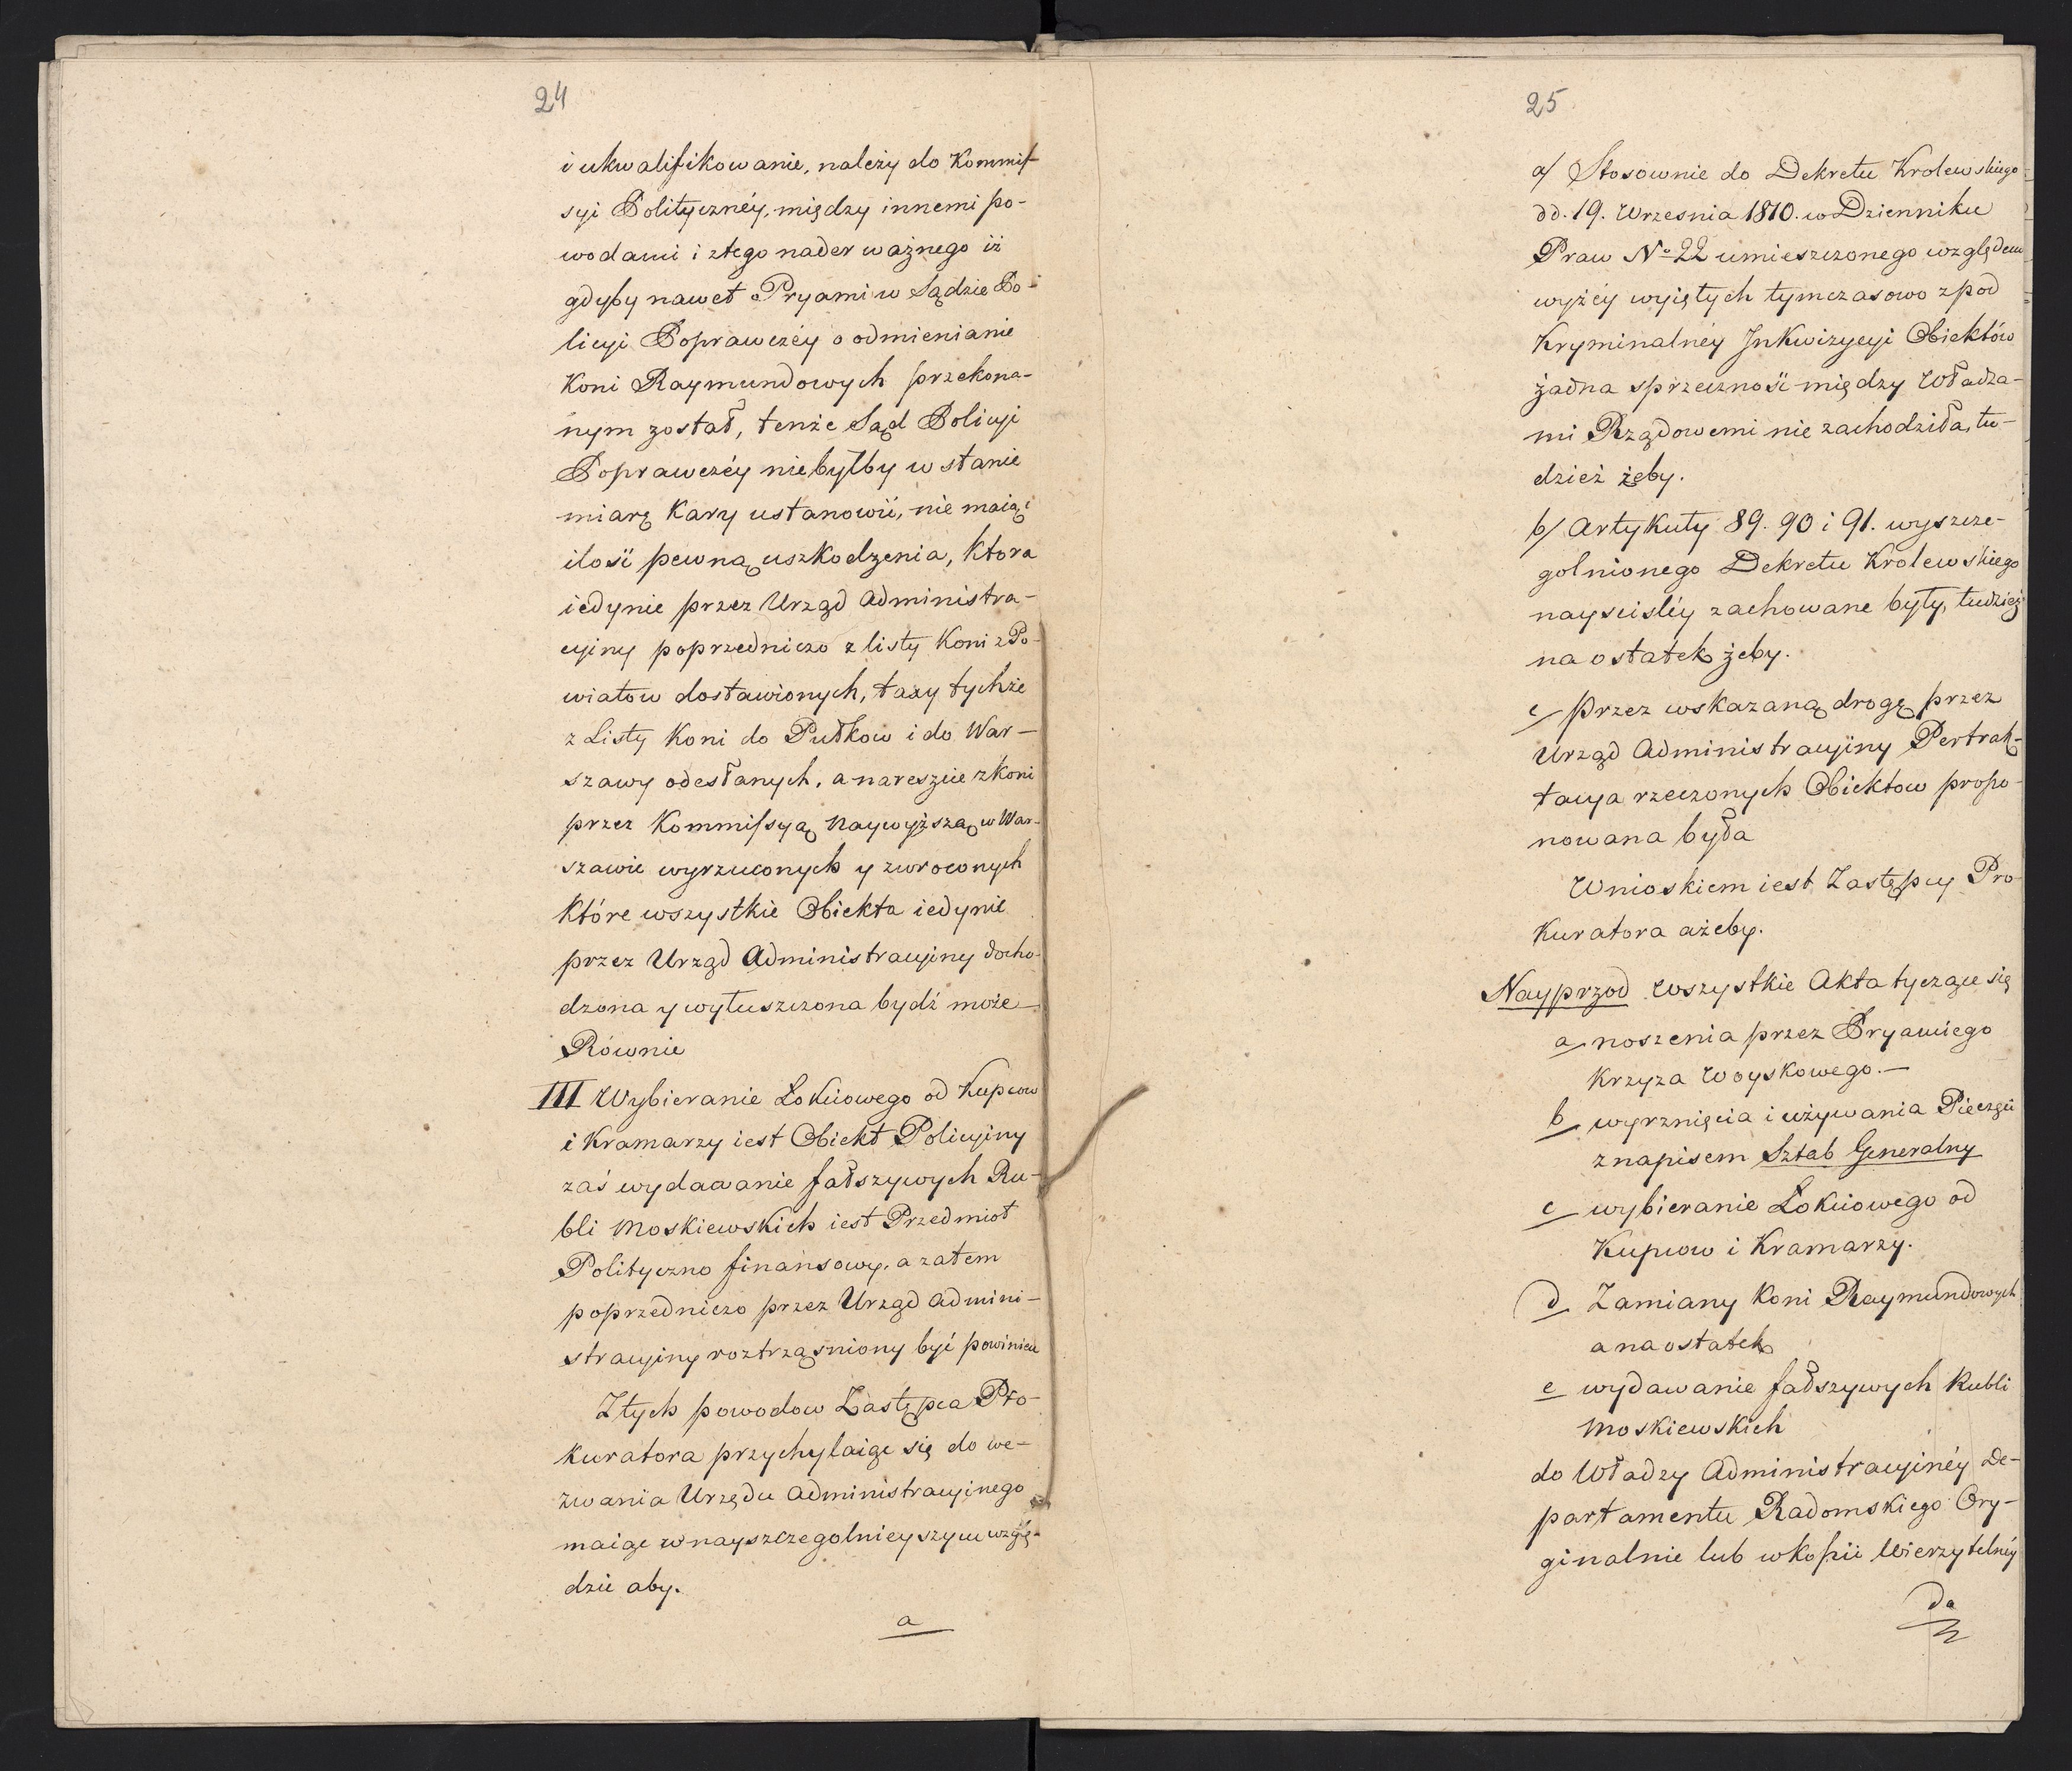 24
i ukwalifikowanie, należy do Kommis-
syi Polityczney, między innemi po-
wodami i ztego nader ważnego iż
gdyby nawet Pryami w Sądzie Po-
licyi Poprawczéy o odmienianie
Koni Raymundowych przekona-
nym został, tenże Sąd Policyi
Poprawczéy niebyłby w stanie
miarę Kary ustanowić, nie maiąc
ilość pewną uszkodzenia, Ktora
iedynie przez Urząd Administra-
cyiny poprzedniczo z listy Koni z Po-
wiatow dostawionych, taxy tychże
z Listy Koni do Pułkow i do War-
szawy odesłanych, a nareszcie z koni
przez Kommissyą Naywyższą w War-
szawie wyrzuconych y zwroconych
Które wszystkie Obiekta iedynie
przez Urząd Administracyiny docho-
dzona y wyłuszczona bydź może
Równie
III Wybieranie Łokciowego od Kupcow
i Kramarzy iest Obiekt Policyiny
zaś wydawanie fałszywych Ru-
bli Moskiewskich iest Przedmiot
Polityczno finansowy, a zatem
poprzedniczo przez Urząd Admini-
stracyiny roztrząsniony być powinien
Ztych powodow Zastępca Pro-
kuratora przychylaiąc się do we-
zwania Urzędu Administracyinego
maiąc w nayszczegolnieyszym wzglę-
dzie aby.
a
25
a/ Stosownie do Dekretu Krolewskiego
dd. 19. Wrzesnia 1810. w Dzienniku
Praw No 22 umieszczonego względem
wyżéy wyiętych tymczasowo zpod
Kryminalnéy Inkwizycyi Obiektów
żadna sprzeczność między Władza-
mi Rządowemi nie zachodziła, tu-
dzież żeby.
b/ Artykuły 89. 90 i 91. wyszcze-
golnionego Dekretu Krolewskiego
nayscisléy zachowane były, tudzież
na ostatek żeby.
c/ przez wskazaną drogę przez
Urząd Administracyiny Pertrak-
tacya rzeczonych Obiektow propo-
nowana była
Wnioskiem iest Zastępcy Pro
kuratora ażeby.
Nayprzod Wszystkie Akta tyczące się
a noszenia przez Pryamiego
Krzyza Woyskowego.—
b wyrznięcia i używania Pieczęci
z napisem Sztab Generalny
c wybieranie Łokciowego od
Kupcow i Kramarzy.
d Zamiany Koni Raymundowych
a na ostatek
e wydawanie fałszywych Rubli
Moskiewskich
do Władzy Administracyinéy De-
partamentu Radomskiego Ory-
ginalnie lub w kopii Wierzytelnéy
da